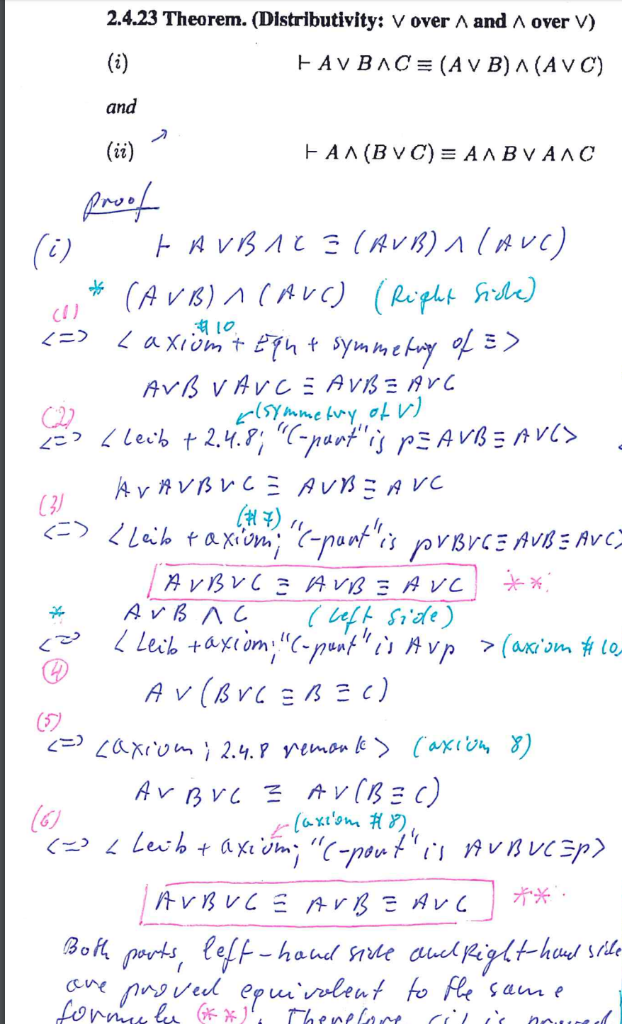 2.4.23 Theorem. (Distributivity: ∨ over ∧ and ∧ over ∨)
(i) ⊢ A ∨ B ∧ C ≡ (A ∨ B) ∧ (A ∨ C)
and
(ii) ⊢ A ∧ (B ∨ C) ≡ A ∧ B ∨ A ∧ C
Proof
(i) ⊢ A ∨ B ∧ C ≡ (A ∨ B) ∧ (A ∨ C)
* (A ∨ B) ∧ (A ∨ C) (Right Side)
(1)
#10
<=> < axiom + Eqn + symmetry of ≡ >
A ∨ B ∨ A ∨ C ≡ A ∨ B ≡ A ∨ C
(2) (symmetry of ∨)
<=> < Leib + 2.4.8; "C-part" is p ≡ A ∨ B ≡ A ∨ C >
A ∨ A ∨ B ∨ C ≡ A ∨ B ≡ A ∨ C
(3) (#7)
<=> < Leib + axiom; "C-part" is p ∨ B ∨ C ≡ A ∨ B ≡ A ∨ C >
A ∨ B ∨ C ≡ A ∨ B ≡ A ∨ C **
* A ∨ B ∧ C (Left Side)
<=> < Leib + axiom; "C-part" is A ∨ p > (axiom #10
(4)
A ∨ (B ∨ C ≡ B ≡ C)
(5)
<=> < axiom; 2.4.8 remark > (axiom 8)
A ∨ B ∨ C ≡ A ∨ (B ≡ C)
(6) (axiom #8)
<=> < Leib + axiom; "C-part" is A ∨ B ∨ C ≡ p >
A ∨ B ∨ C ≡ A ∨ B ≡ A ∨ C **
Both parts, left-hand side and Right-hand side
are proved equivalent to the same
formula (**). Therefore (i) is proved